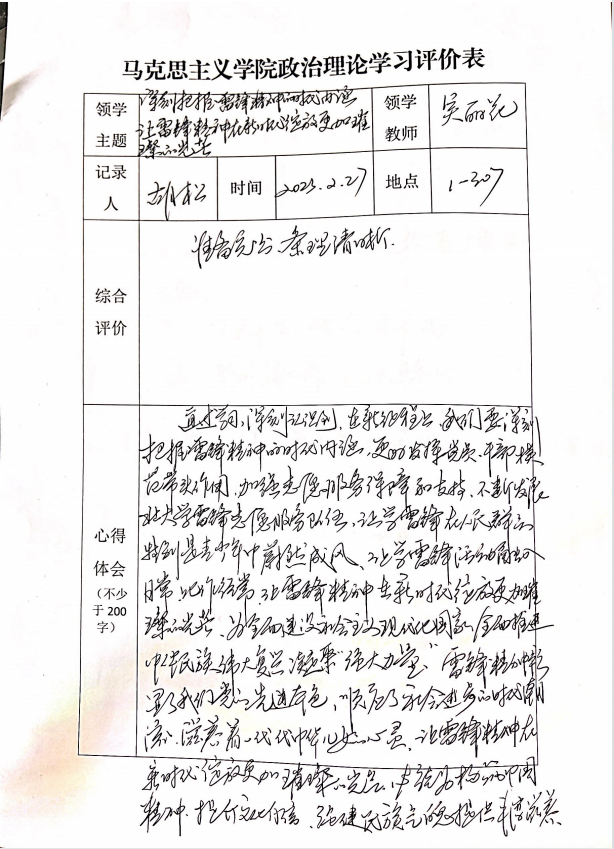 马克思主义学院政治理论学习评价表
领学主题
深刻把握雷锋精神的时代内涵
让雷锋精神在新时代绽放更加璀
璨的光芒
领学教师
吴丽花
记录人
胡松
时间
2023.2.27
地点
1-307
综合评价
准备充分、条理清晰.
心得体会
(不少于200字)
通过学习,深刻认识到,在新征程上,我们要深刻
把握雷锋精神的时代内涵,更好发挥党员、干部模
范带头作用,加强志愿服务保障和支持,不断发展
壮大学雷锋志愿服务队伍,让学雷锋在人民群众
特别是青少年中蔚然成风,让学雷锋活动融入
日常、化作经常,让雷锋精神在新时代绽放更加璀
璨的光芒,为全面建设社会主义现代化国家、全面推进
中华民族伟大复兴凝聚强大力量。雷锋精神彰
显了我们党的先进本色,顺应了社会进步的时代潮
流,滋养着一代代中华儿女的心灵,让雷锋精神在
新时代绽放更加璀璨的光芒,中国
精神、提升文化自信、强健民族气魄提供滋养